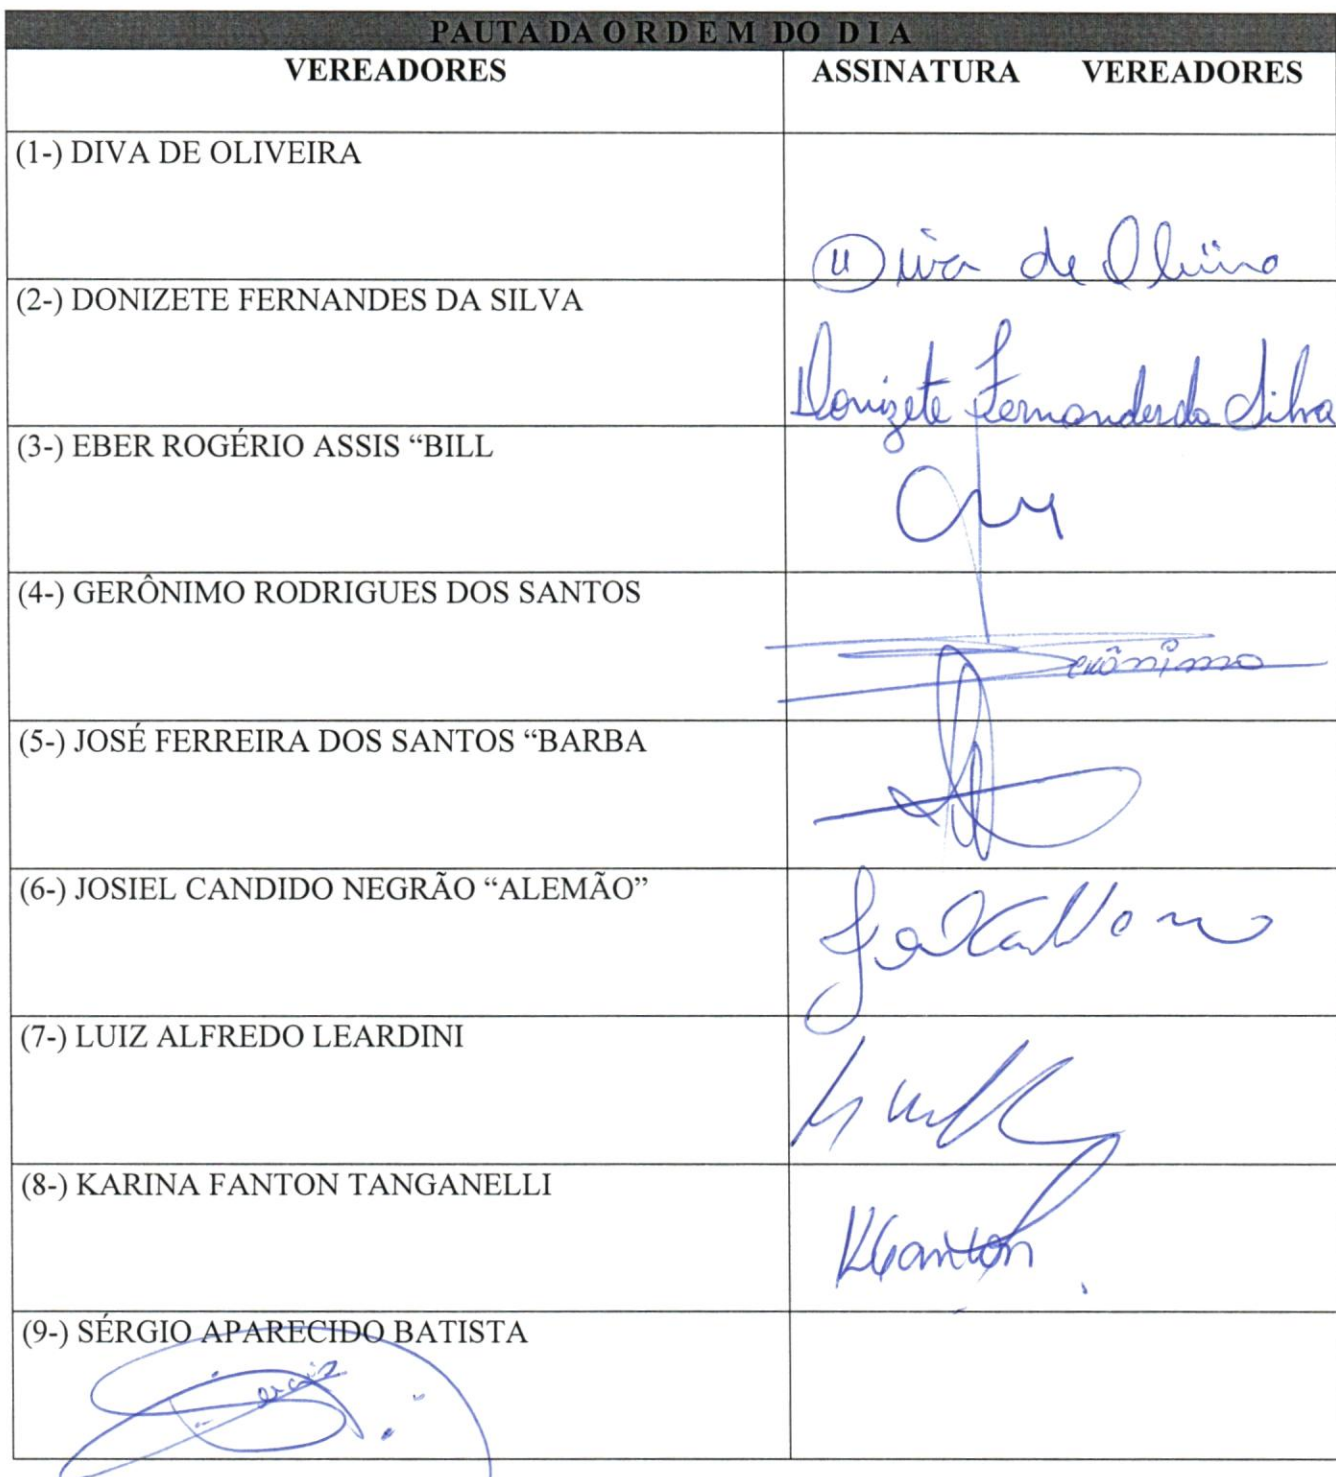 PAUTA DA O R D E M DO D I A
VEREADORES ASSINATURA VEREADORES
(1-) DIVA DE OLIVEIRA
Diva de
(2-) DONIZETE FERNANDES DA SILVA
Donizete Fernandes da Silva
(3-) EBER ROGÉRIO ASSIS “BILL
(4-) GERÔNIMO RODRIGUES DOS SANTOS
Gerônimo
(5-) JOSÉ FERREIRA DOS SANTOS “BARBA
(6-) JOSIEL CANDIDO NEGRÃO “ALEMÃO”
(7-) LUIZ ALFREDO LEARDINI
(8-) KARINA FANTON TANGANELLI
(9-) SÉRGIO APARECIDO BATISTA